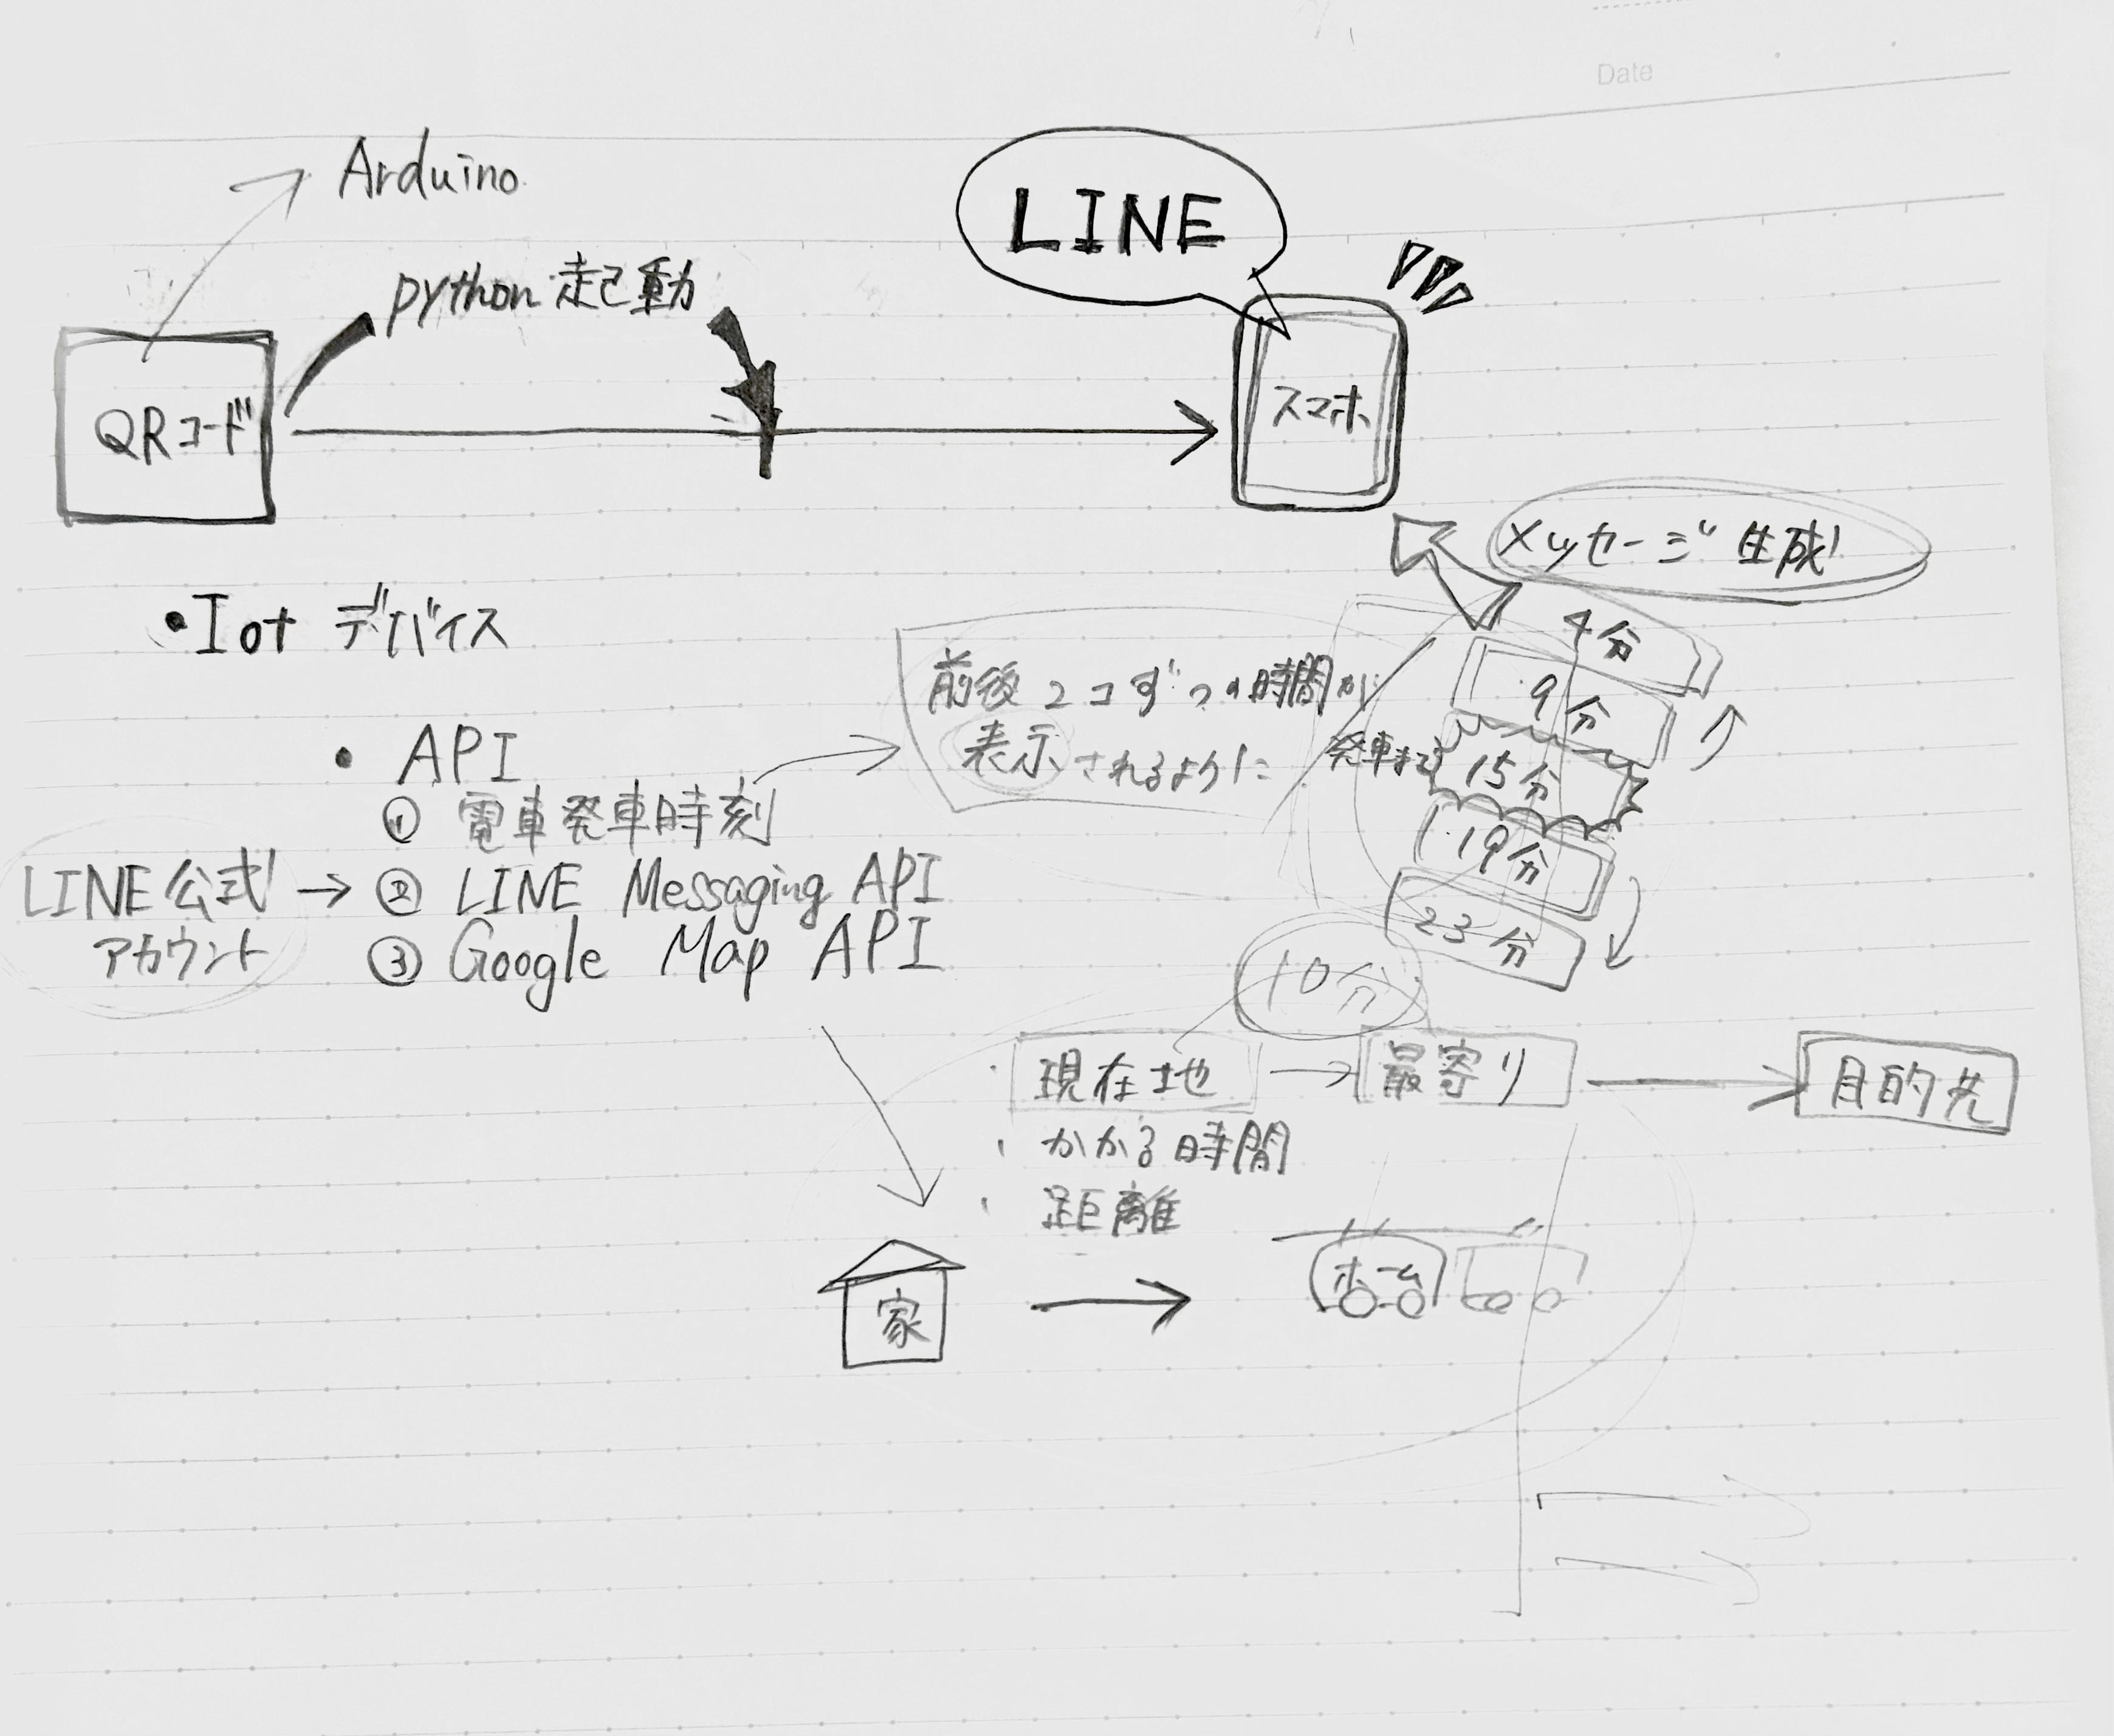 Date
Arduino
LINE
python 起動
QRコード
スマホ
メッセージ 生成!
・Iot デバイス
4分
前後2コずつの時間が
表示されるように
9分
・API
発車まで
15分
① 電車発車時刻
19分
LINE公式
アカウント
→ ② LINE Messaging API
23分
③ Google Map API
10分
・現在地 → 最寄り → 目的先
・かかる時間
・距離
家
ホーム